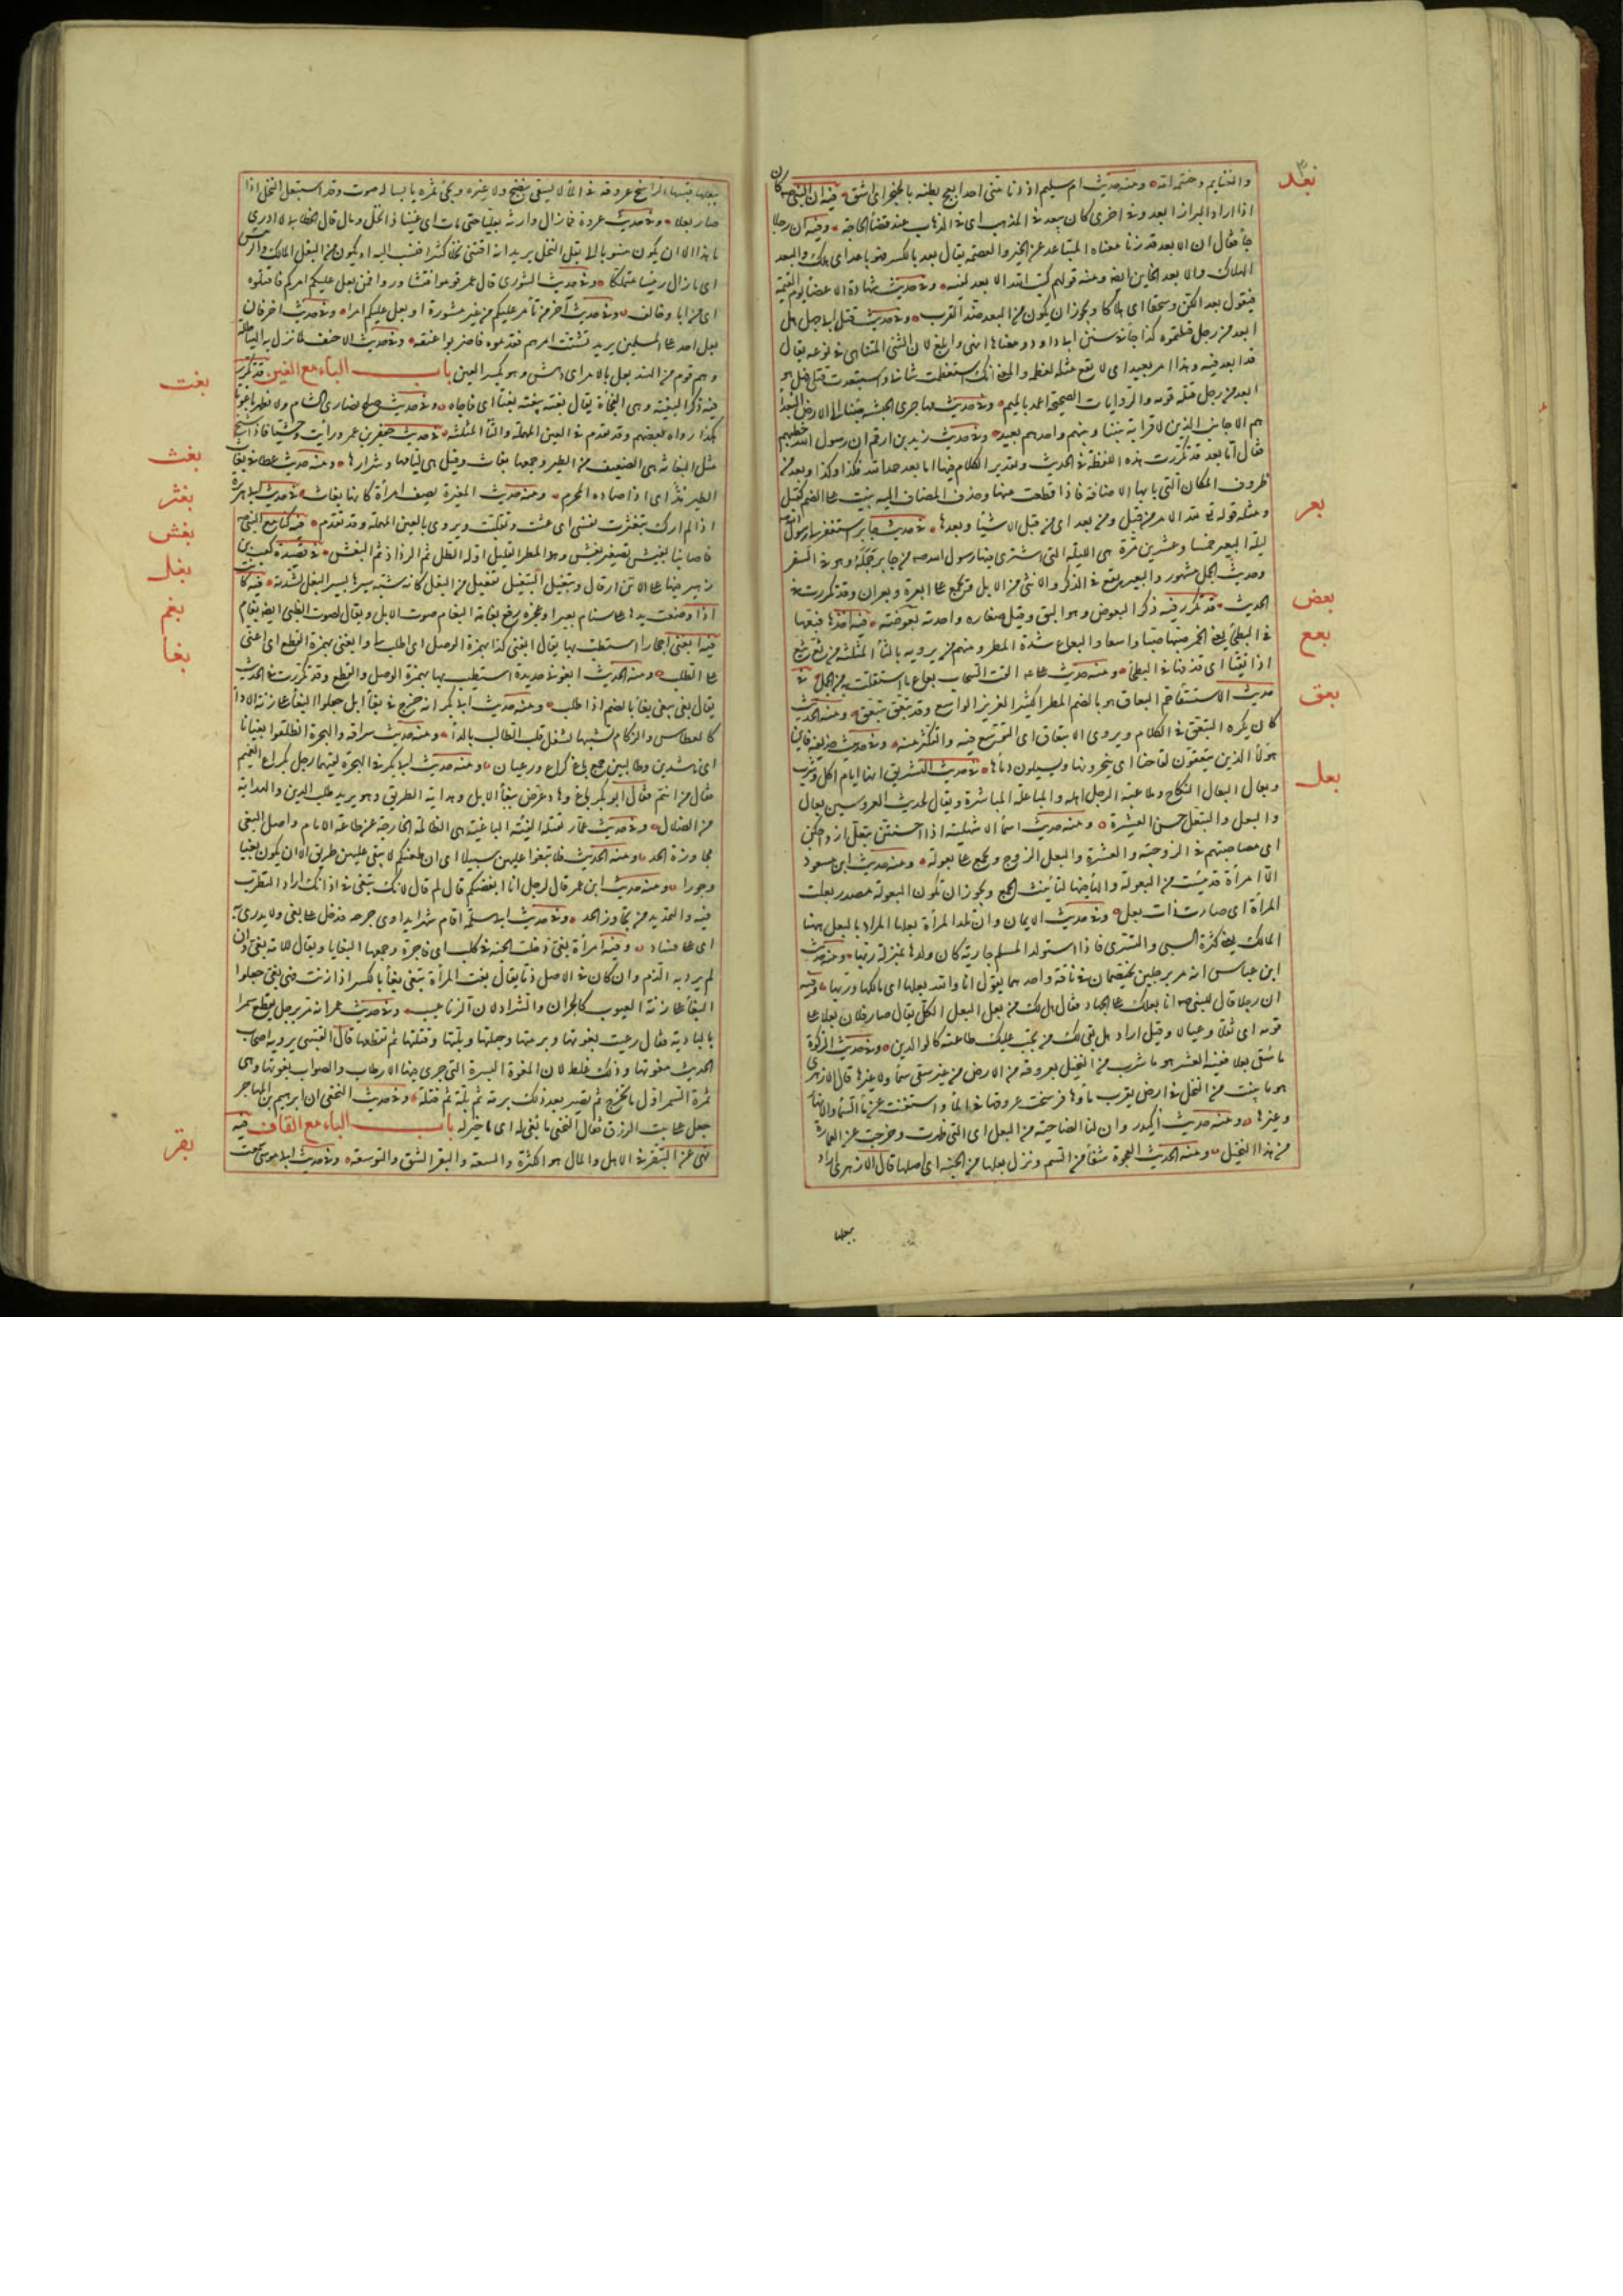 بعد
والغنايم وختمه اته ومنه حديث ام سليم اذ دنا مني احد ابعج بطنه بالخنجر اى اشق فيه ان النبي صلعم كان
اذا اراد البراز ابعد وفى اخرى كان يبعد فى المذهب اى فى الذهاب عند قضاء الحاجة وفيه ان رجلا
جاء فقال ان الابعد قد زنا معناه المتباعد عن الخير والعصمة يقال بعد بالكسر فهو باعد اى هلك والبعد
الهلاك والابعد الخاين ايضا ومنه قولهم كب الله الابعد لفيه وفى حديث شهادة الاعضاء يوم القيمة
فيقول بعدا لكن وسحقا اى هلاكا ويجوز ان يكون من البعد ضد القرب وفى حديث قتل ابى جهل هل
ابعد من رجل قتلتموه كذا جاء فى سنن ابى داود ومعناها انهى وابلغ لان الشئ المتناهى فى نوعه يقال
قد ابعد فيه وهذا امر بعيد اى لا يقع مثله لعظمه والمعنى انك استعظمت شانى واستبعدت قتلى فهل هو
ابعد من رجل قتله قومه والروايات الصحيحة اعمد بالميم وفى حديث مهاجرى الحبشة جئنا الى ارض البعداء
هم الاجانب الذين لا قرابة بيننا وبينهم واحدهم بعيد وفى حديث زيد بن ارقم ان رسول الله خطبهم
فقال اما بعد قد تكررت هذه اللفظة فى الحديث وتقدير الكلام فيها اما بعد حمد الله فكذا وكذا وبعد من
ظروف المكان التى بابها الاضافة فاذا قطعت عنها وحذف المضاف اليه بنيت على الضم كقبل
بعر
ومثله قوله تعالى لله الامر من قبل ومن بعد اى من قبل الاشياء وبعدها فى حديث جابر استغفر لى رسول الله
ليلة البعير خمسا وعشرين مرة هى الليلة التى اشترى فيها رسول الله من جابر جمله وهو فى السفر
وحديث الجمل مشهور والبعير يقع على الذكر والانثى من الابل ويجمع على ابعرة وبعران وقد تكررت فى
بعض
الحديث قد تكرر فيه ذكر البعوض وهو البق وقيل صغاره واحدته بعوضة فيه اخذها فبعها
بعع
فى البطحاء يعنى الخمر صبها صبا واسعا والبعاع شدة المطر ومنهم من يرويه بالثاء المثلثة من ثع يثع
اذا تقيأ اى قذفها فى البطحاء ومنه حديث على القت السحاب بعاع ما استقلت به من الحمل فى
بعق
حديث الاستسقاء جم البعاق هو بالضم المطر الكثير الغزير الواسع وقد تبعق يتبعق ومنه الحديث
كان يكره التبعق فى الكلام ويروى الانبعاق اى التوسع فيه والتكثر منه وفى حديث حذيفة فاين
هولاء الذين يبعقون لقاحنا اى ينحرونها ويسيلون دماءها فى حديث التشريق انها ايام اكل وشرب
بعل
وبعال البعال النكاح وملاعبة الرجل اهله والمباعلة المباشرة ويقال لحديث العروسين بعال
والبعل والتبعل حسن العشرة ومنه حديث اسماء الاشهلية اذا احسنتن تبعل ازواجكن
اى مصاحبتهم فى الزوجية والعشرة والبعل الزوج ويجمع على بعولة ومنه حديث ابن مسعود
الا امرأة قد يئست من البعولة والهاء فيها لتانيث الجمع ويجوز ان تكون البعولة مصدر بعلت
المرأة اى صارت ذات بعل وفى حديث الايمان وان تلد المرأة بعلها المراد بالبعل ههنا
المالك يعنى كثرة السبى والتسرى فاذا استولد المسلم جارية كان ولدها بمنزلة ربها ومنه حديث
ابن عباس انه مر برجلين يختصمان فى ناقة واحدهما يقول انا والله بعلها اى مالكها وربها وفيه
ان رجلا قال للنبى صلعم انا بايعك على الجهاد فقال هل لك من بعل البعل الكل يقال صار فلان بعلا على
قومه اى ثقلا وعيالا وقيل اراد هل بقى لك من يجب عليك طاعته كالوالدين وفى حديث الزكوة
ما سقى بعلا ففيه العشر هو ما شرب من النخيل بعروقه من الارض من غير سقى سماء ولا غيرها قال الازهرى
هو ما ينبت من النخل فى ارض يقرب ماؤها فرسخت عروقها فى الماء واستغنت عن ماء السماء والانهار
وغيرها ومنه حديث اكيدر وان لنا الضاحية من البعل اى التى ظهرت وخرجت عن العمارة
من هذا النخيل ومنه الحديث العجوة شفاء من السم ونزل بعلها من الجنة اى اصلها قال الازهرى اراد
ببعلها
ببعلها قسبها الراسخ عروقه فى الماء لا يسقى بنضح ولا غيره ويجئ تمره يابسا له صوت وقد استبعل النخل اذا
صار بعلا وفى حديث عروة فما زال وارثه بعليا حتى مات اى غنيا ذا نخل ومال قال الخطابى لا ادرى
ما هذا الا ان يكون منسوبا الى بعل النخل يريد انه اقتنى نخلا كثيرا فنسب اليه او يكون من البعل المالك والرئيس
اى ما زال رئيسا متملكا وفى حديث الشورى قال عمر قوموا فتشاوروا فمن بعل عليكم امركم فاقتلوه
اى من ابا وخالف وفى حديث آخر من تأمر عليكم من غير مشورة او بعل عليكم امرا وفى حديث اخر فان
بعل احد على المسلمين يريد تشتت امرهم فقدموه فاضربوا عنقه وفى حديث الاحنف لما نزل به الهياطلة
وهم قوم من الهند بعل بالامر اى دهش وهو بكسر العين باب الباء مع الغين قد تكرر
بغت
فيه ذكر البغتة وهى الفجأة يقال بغته يبغته بغتا اى فاجاه وفى حديث صلح نصارى الشام ولا نظهر باغوتا
هكذا رواه بعضهم وقد تقدم فى العين المهملة والثاء المثلثة فى حديث جعفر بن عمرو رأيت وحشيا فاذا شيخ
بغث
مثل البغاثة هى الضعيف من الطير وجمعها بغاث وقيل هى لئامها وشرارها ومنه حديث عطا فى بغاث
الطير مُدّ اى اذا صاده المحرم ومنه حديث المغيرة يصف امرأة كانها بغاث فى حديث ابى هريرة
بغثر
اذا لم ارك تبغثرت نفسى اى غثت وتقلبت ويروى بالعين المهملة وقد تقدم فيه كنا مع النبى صلعم
بغش
فاصابنا بغيش تصغير بغش وهو المطر القليل اوله الطل ثم الرذاذ ثم البغش فى قصيدة كعب بن
بغل
زهير فيها على الاين ارقال وتبغيل التبغيل تفعيل من البغل كانه شبه سيرها بسير البغل لشدته فيه كانت
بغم
اذا وضعت يدها على سنام بعير او عجزه رفع بغامه البغام صوت الابل ويقال لصوت الظبى ايضا بغام
بغا
فيه ابغنى احجارا استطب بها يقال ابغنى كذا بهمزة الوصل اى اطلب لى وابغنى بهمزة القطع اى اعنى
على الطلب ومنه الحديث ابغونى حديدة استطيب بها بهمزة الوصل والقطع وقد تكررت فى الحديث
يقال بغى يبغى بغاء بالضم اذا طلب ومنه حديث ابى بكر انه خرج فى بغاء ابل جعلوا البغاء على زنة الادواء
كالعطاس والزكام تشبيها لشغل قلب الطالب بالداء ومنه حديث سراقة والهجرة انطلقوا بغيانا
اى ناشدين وطالبين جمع باغ كراع ورعيان ومنه حديث ابى بكر فى الهجرة لقيهما رجل بكراع الغميم
فقال من انتم فقال ابو بكر باغ وهاد عرض ببغاء الابل وهداية الطريق وهو يريد طلب الدين والهداية
من الضلال وفى حديث عمار تقتله الفئة الباغية هى الظالمة الخارجة عن طاعة الامام واصل البغى
مجاوزة الحد ومنه الحديث فلا تبغوا عليهن سبيلا اى ان اطعنكم لا يبقى عليهن طريق الا ان يكون بغيا
وجورا ومنه حديث ابن عمر قال لرجل انا ابغضكم قال لم قال لانك تبغى فى اذانك اراد التطريب
فيه والتمديد من تجاوز الحد وفى حديث ابى سلمة اقام شهرا يداوى جرحه فدمل على بغى ولا يدرى به
اى على فساد وفيه امرأة بغى دخلت الجنة فى كلب اى فاجرة وجمعها البغايا ويقال للامة بغى وان
لم يرد به الذم وان كان فى الاصل ذما يقال بغت المرأة تبغى بغاء بالكسر اذا زنت فهى بغى جعلوا
البغاء على زنة العيوب كالحران والشراد لان الزنا عيب وفى حديث عمر انه مر برجل يقطع سمرا
بالبادية فقال رعيت بغوتها وبرمتها وحبلتها وبلتها وفتلتها ثم تقطعها قال القتيبى يرويه اصحاب
الحديث معوتها وذلك غلط لان المعوة البسرة التى جرى فيها الارطاب والصواب بغوتها وهى
ثمرة السمر اول ما تخرج ثم تصير بعد ذلك برمة ثم بلة ثم فتلة وفى حديث النخعى ان ابرهيم بن المهاجر
جعل على بيت الرزق فقال النخعى ما بغى له اى ما خير له باب الباء مع القاف فيه
بقر
نهى عن التبقر فى الاهل والمال هو الكثرة والسعة والبقر الشق والتوسعة وفى حديث ابى موسى سمعت